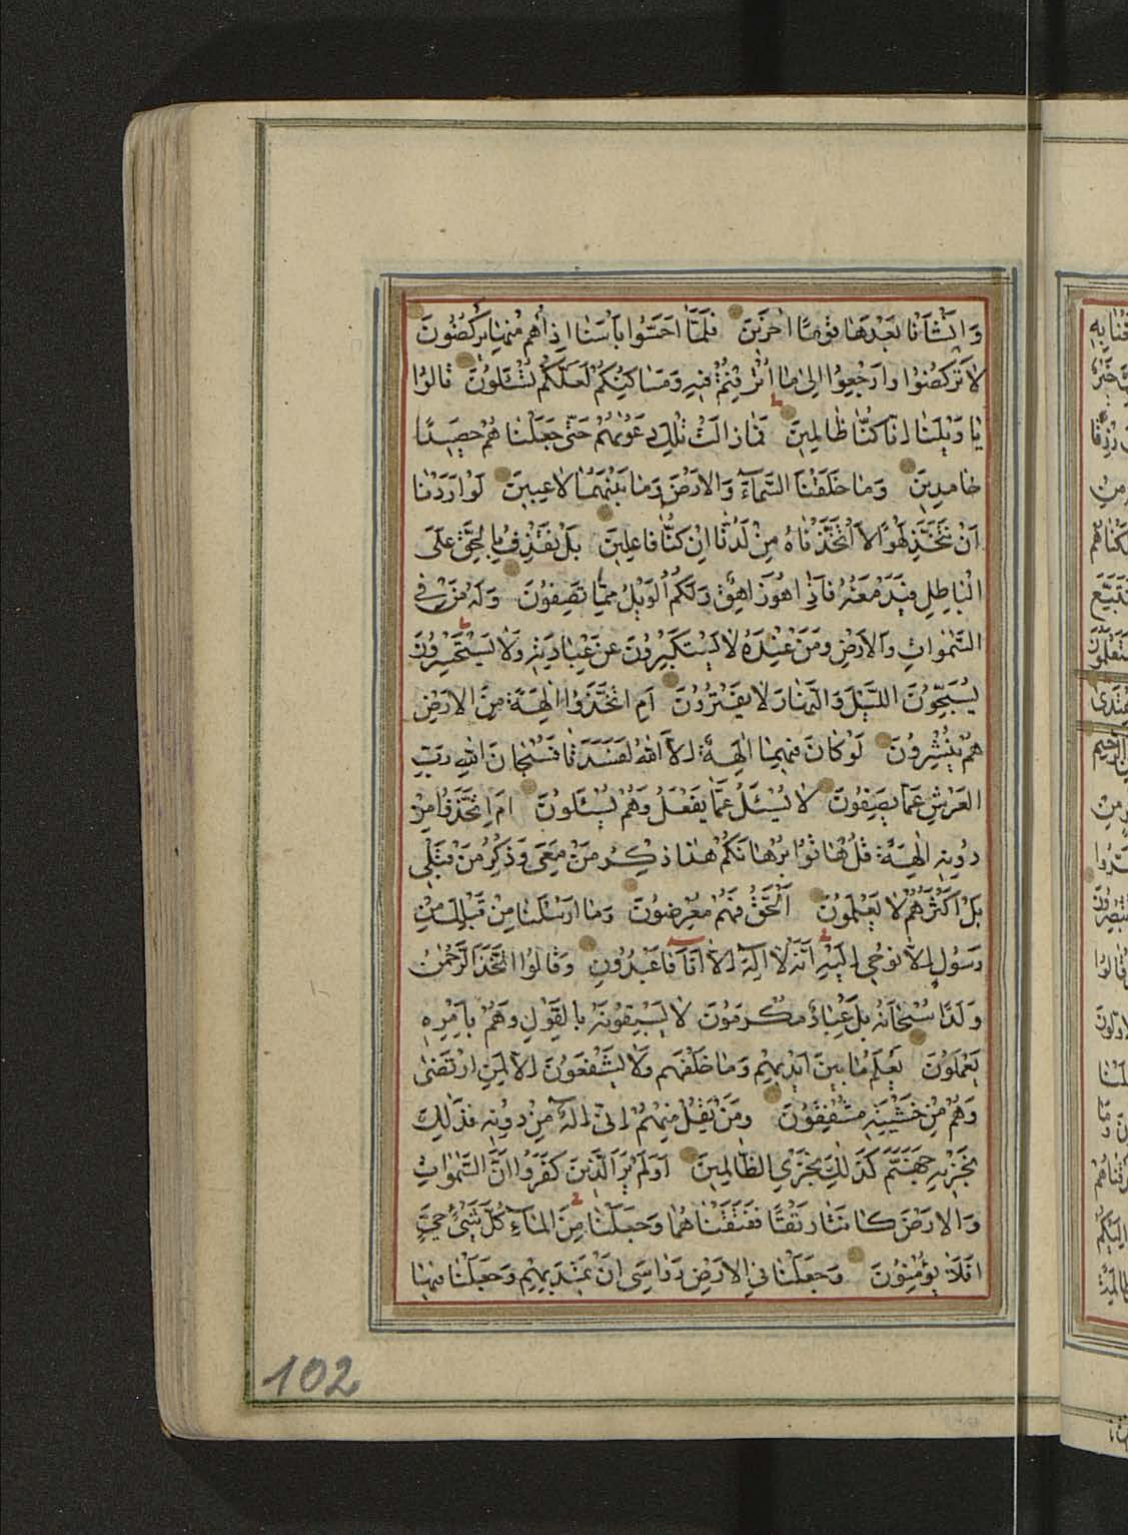 وَاَنْشَاْنَا بَعْدَهَا قَوْمًا اٰخَرٖينَ فَلَمَّٓا اَحَسُّوا بَاْسَنَا اِذَا هُمْ مِنْهَا يَرْكُضُونَ
لَا تَرْكُضُوا وَارْجِعُوا اِلٰى مَا اُتْرِفْتُمْ فٖيهِ وَمَسَاكِنِكُمْ لَعَلَّكُمْ تُسْئَلُونَ قَالُوا
يَا وَيْلَنَا اِنَّا كُنَّا ظَالِمٖينَ فَمَا زَالَتْ تِلْكَ دَعْوٰيهُمْ حَتّٰى جَعَلْنَاهُمْ حَصٖيدًا
خَامِدٖينَ وَمَا خَلَقْنَا السَّمَٓاءَ وَالْاَرْضَ وَمَا بَيْنَهُمَا لَاعِبٖينَ لَوْ اَرَدْنَا
اَنْ نَتَّخِذَ لَهْوًا لَاتَّخَذْنَاهُ مِنْ لَدُنَّا اِنْ كُنَّا فَاعِلٖينَ بَلْ نَقْذِفُ بِالْحَقِّ عَلَى
الْبَاطِلِ فَيَدْمَغُهُ فَاِذَا هُوَ زَاهِقٌ وَلَكُمُ الْوَيْلُ مِمَّا تَصِفُونَ وَلَهُ مَنْ فِي
السَّمٰوَاتِ وَالْاَرْضِ وَمَنْ عِنْدَهُ لَا يَسْتَكْبِرُونَ عَنْ عِبَادَتِهٖ وَلَا يَسْتَحْسِرُونَ
يُسَبِّحُونَ الَّيْلَ وَالنَّهَارَ لَا يَفْتُرُونَ اَمِ اتَّخَذُوا اٰلِهَةً مِنَ الْاَرْضِ
هُمْ يُنْشِرُونَ لَوْ كَانَ فٖيهِمَا اٰلِهَةٌ اِلَّا اللّٰهُ لَفَسَدَتَا فَسُبْحَانَ اللّٰهِ رَبِّ
الْعَرْشِ عَمَّا يَصِفُونَ لَا يُسْئَلُ عَمَّا يَفْعَلُ وَهُمْ يُسْئَلُونَ اَمِ اتَّخَذُوا مِنْ
دُونِهٖ اٰلِهَةً قُلْ هَاتُوا بُرْهَانَكُمْ هٰذَا ذِكْرُ مَنْ مَعِيَ وَذِكْرُ مَنْ قَبْلٖي
بَلْ اَكْثَرُهُمْ لَا يَعْلَمُونَ الْحَقَّ فَهُمْ مُعْرِضُونَ وَمَا اَرْسَلْنَا مِنْ قَبْلِكَ مِنْ
رَسُولٍ اِلَّا نُوحٖي اِلَيْهِ اَنَّهُ لَا اِلٰهَ اِلَّا اَنَا فَاعْبُدُونِ وَقَالُوا اتَّخَذَ الرَّحْمٰنُ
وَلَدًا سُبْحَانَهُ بَلْ عِبَادٌ مُكْرَمُونَ لَا يَسْبِقُونَهُ بِالْقَوْلِ وَهُمْ بِاَمْرِهٖ
يَعْمَلُونَ يَعْلَمُ مَا بَيْنَ اَيْدٖيهِمْ وَمَا خَلْفَهُمْ وَلَا يَشْفَعُونَ اِلَّا لِمَنِ ارْتَضٰى
وَهُمْ مِنْ خَشْيَتِهٖ مُشْفِقُونَ وَمَنْ يَقُلْ مِنْهُمْ اِنّٖي اِلٰهٌ مِنْ دُونِهٖ فَذٰلِكَ
نَجْزٖيهِ جَهَنَّمَ كَذٰلِكَ نَجْزِي الظَّالِمٖينَ اَوَلَمْ يَرَ الَّذٖينَ كَفَرُوا اَنَّ السَّمٰوَاتِ
وَالْاَرْضَ كَانَتَا رَتْقًا فَفَتَقْنَاهُمَا وَجَعَلْنَا مِنَ الْمَاءِ كُلَّ شَيْءٍ حَيٍّ
اَفَلَا يُؤْمِنُونَ وَجَعَلْنَا فِي الْاَرْضِ رَوَاسِيَ اَنْ تَمٖيدَ بِهِمْ وَجَعَلْنَا فٖيهَا
102